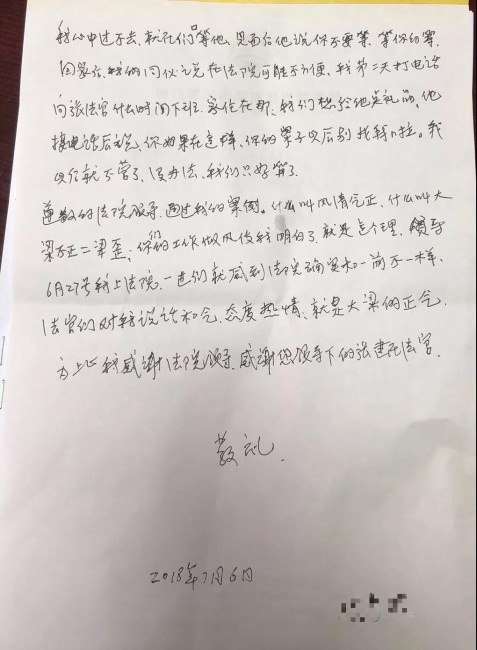 我心中过不去、就在门口等他、见面后他说你不要等、等你的事、
回家后、我的同仪之说在法院可能不方便、我第二天打电话
向张法官什么时间下班、家住在那、我们想给他点礼品、他
接电话后就说、你如果在这样、你的案子以后别找我们啦。我
以后就不管了、没办法、我们只好算了.
尊敬的法院领导、通过我的案例。什么叫风清气正、什么叫大
梁不正二梁歪、你们的工作做风使我明白了、就是这个理、领导
6月27号我上法院、一进门就感到法院确实和以前不一样、
法官们对我说话和气、态度热情、就是大梁的正气、
为此我感谢法院领导、感谢您领导下的张建民法官.
敬礼.
2018年7月6月